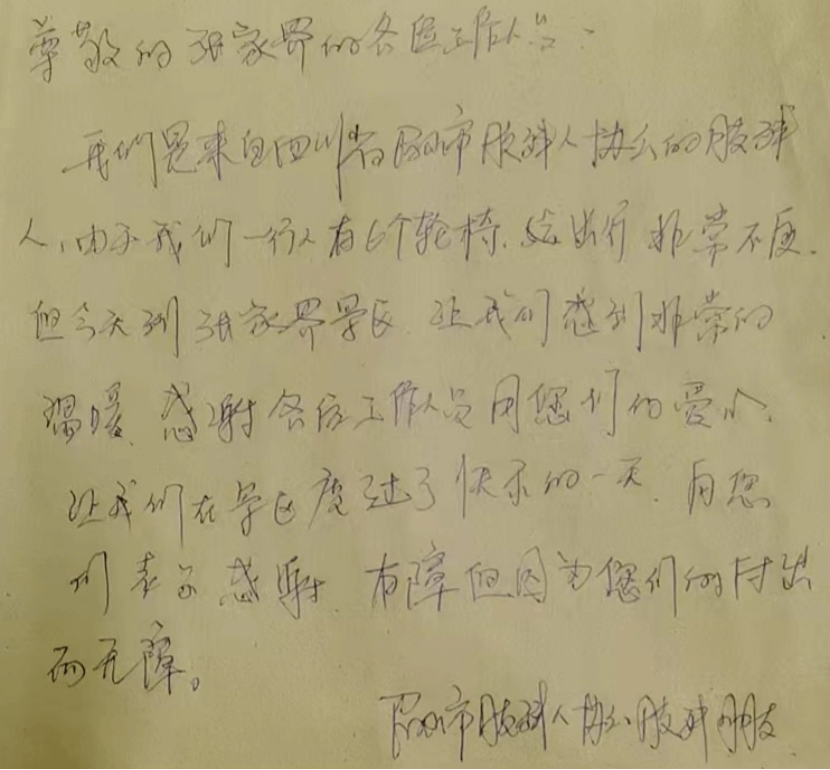 尊敬的张家界的各位工作人员:
我们是来自四川省阆中市肢残人协会的肢残
人,由于我们一行人有6个轮椅、给出行非常不便.
但今天到张家界景区.让我们感到非常的
温暖.感谢各位工作人员用您们的爱心、
让我们在景区度过了快乐的一天.向您
们表示感谢.有障但因为您们的付出
而无障。
阆中市肢残人协会肢残朋友